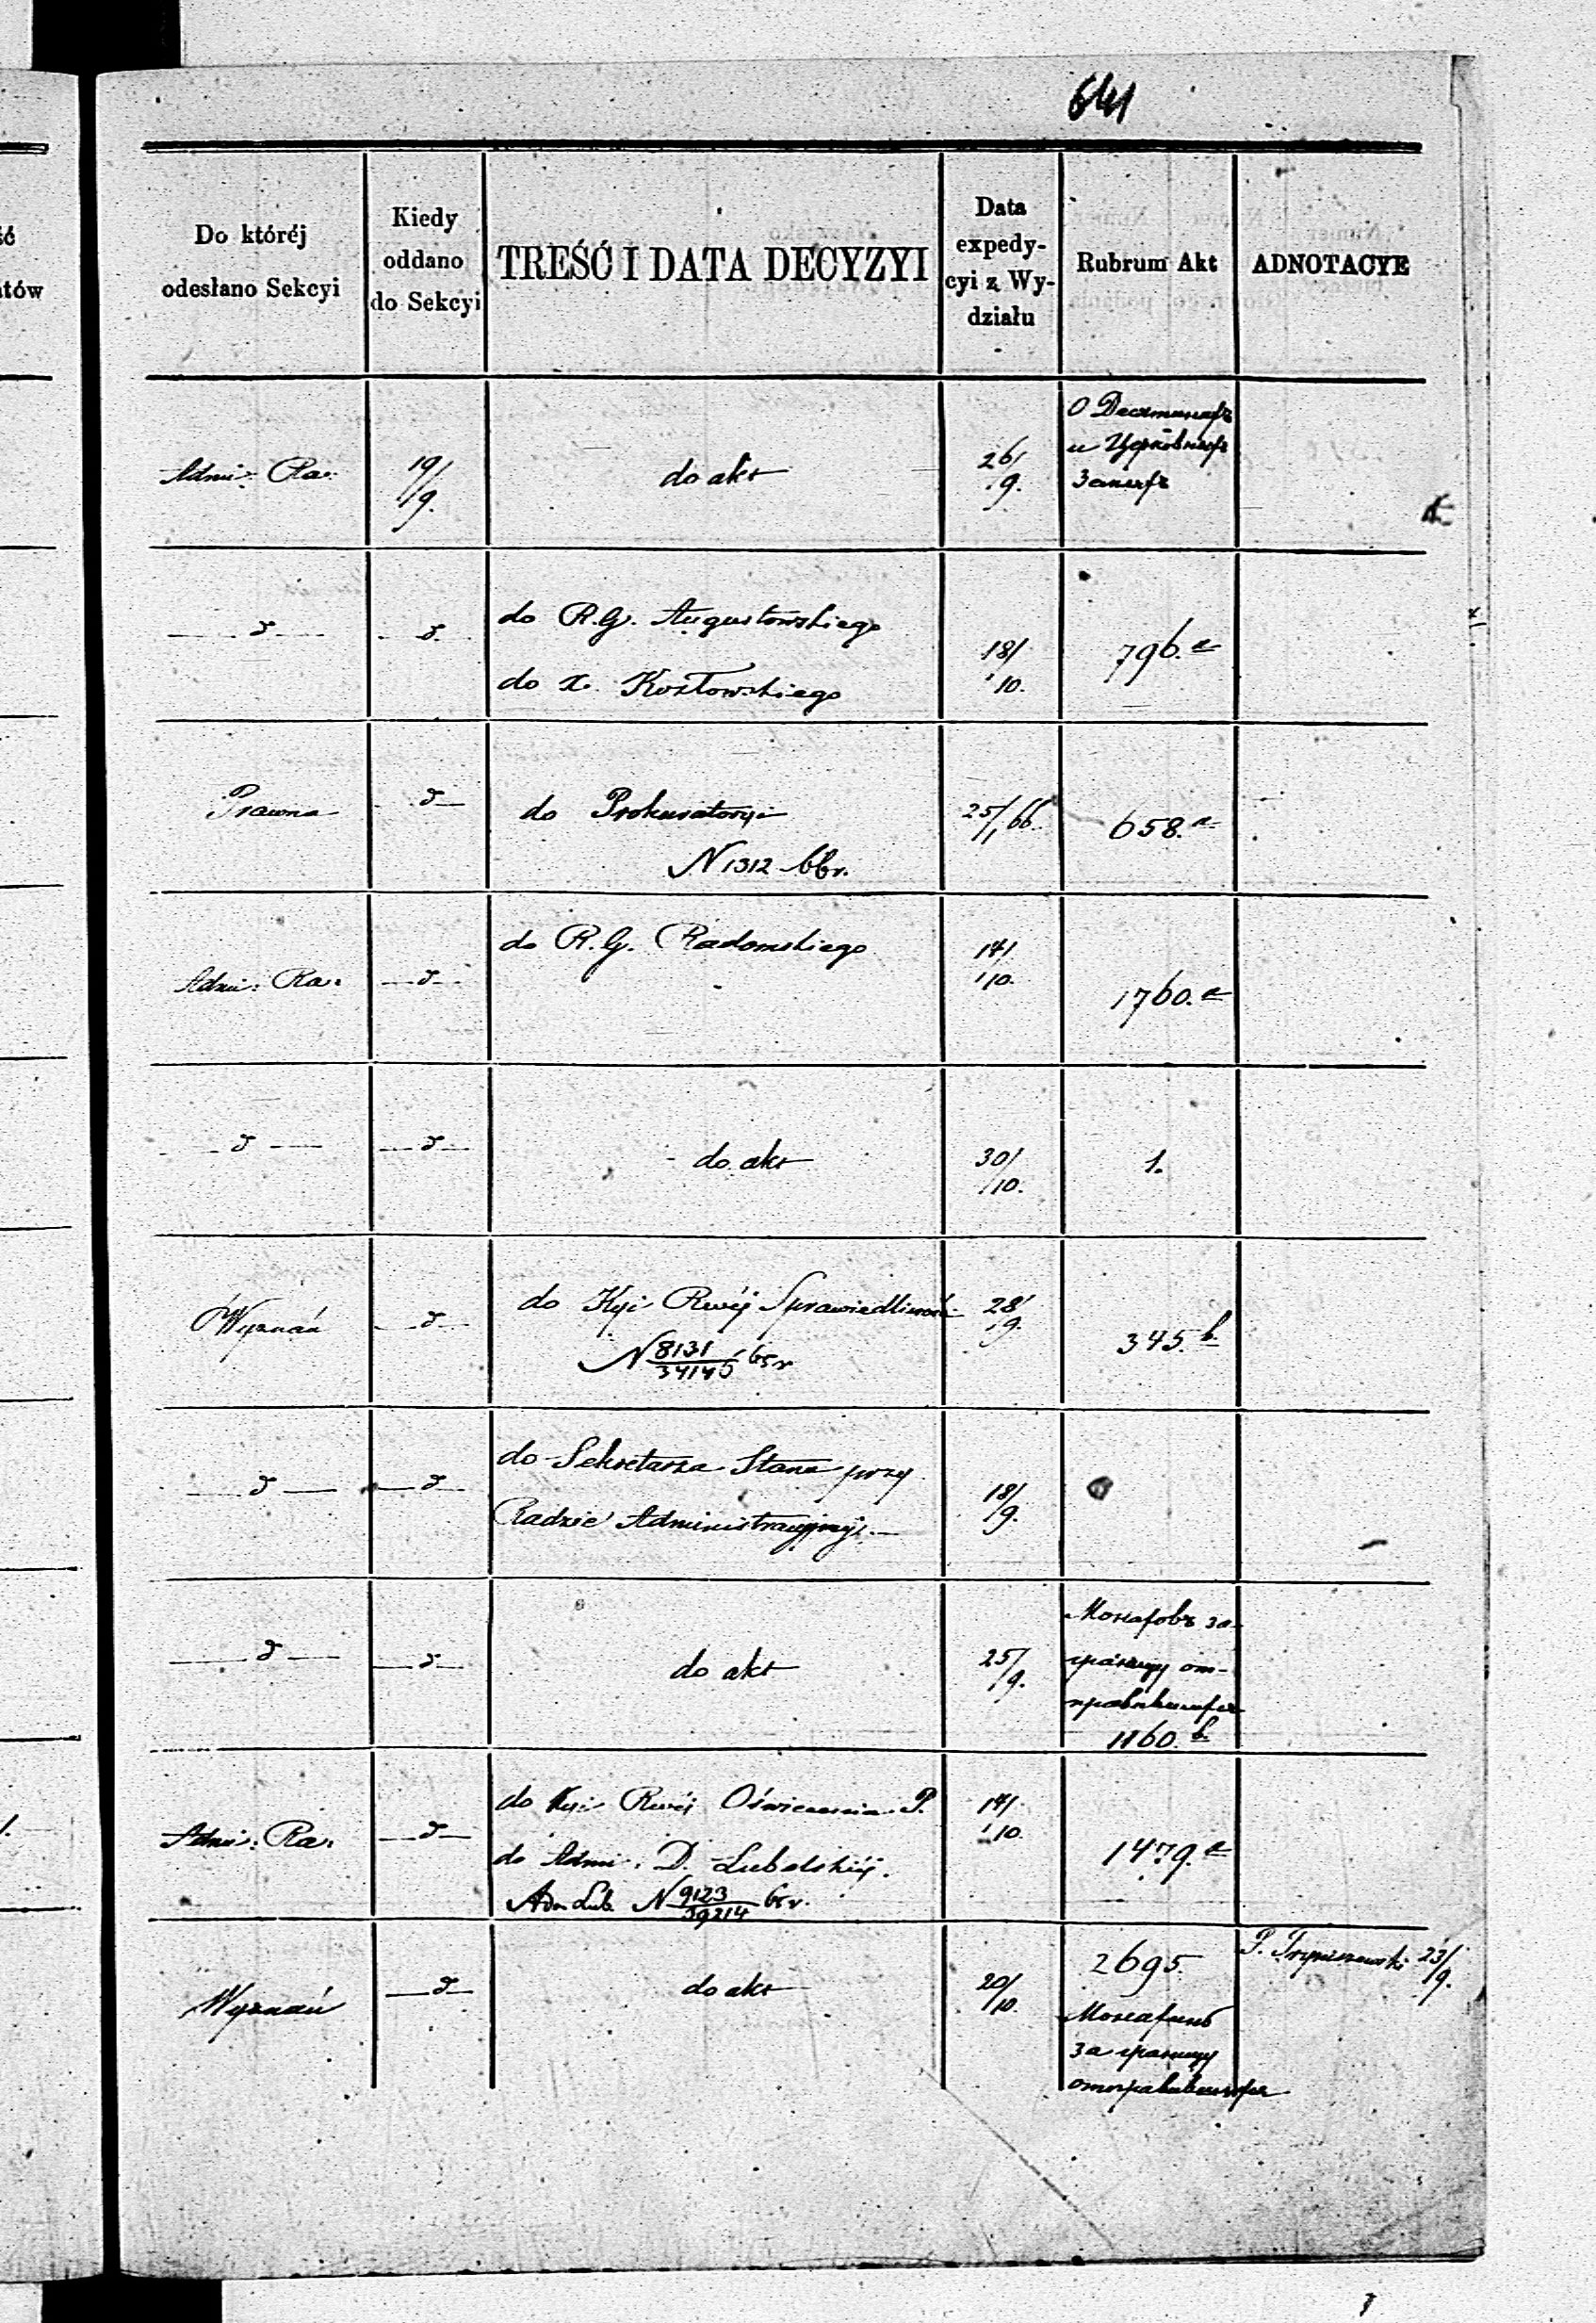 641
ść
ntów
Do któréj
odesłano Sekcyi
Kiedy
oddano
do Sekcyi
TREŚĆ I DATA DECYZYI
Data
expedy-
cyi z Wy-
działu
Rubrum Akt
ADNOTACYE
Admi: Ra:
19/9.
do akt
26/9.
O
и
d
d.
do R.G. Augustowskiego
do X. Kozłowskiego
18/10.
796.a
Prawna
d
do Prokuratoryi
N 1312 66 r.
25/1 66.
658.a
Admi: Ra:
d
do R.G. Radomskiego
14/10.
1760.a
d
d
do akt
30/10.
1.
Wyznań
d
do Kyi Rwéj Sprawiedliwości
N 8131/34145 65 r
28/9.
345.b
d
d
do Sekretarza Stanu przy
Radzie Administracyjnéj.
18/9.
d
d
do akt
25/9.
за
1160.b
Admi: Ra:
d
do Kyi Rwéj Oświecenia P.
do Admi. D. Lubelskiéj.
Adm Lub. N 9123/39214 65 r.
14/10.
1479.a
Wyznań
d
do akt
20/10.
2695.
за
P. 23/9.